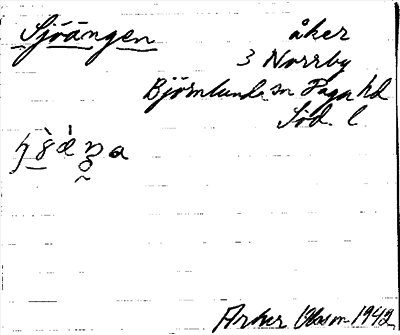 Sjöängen åker
3 Norrby
Björnlunda sn Daga hd
Söd. l
Arker Olsson 1942